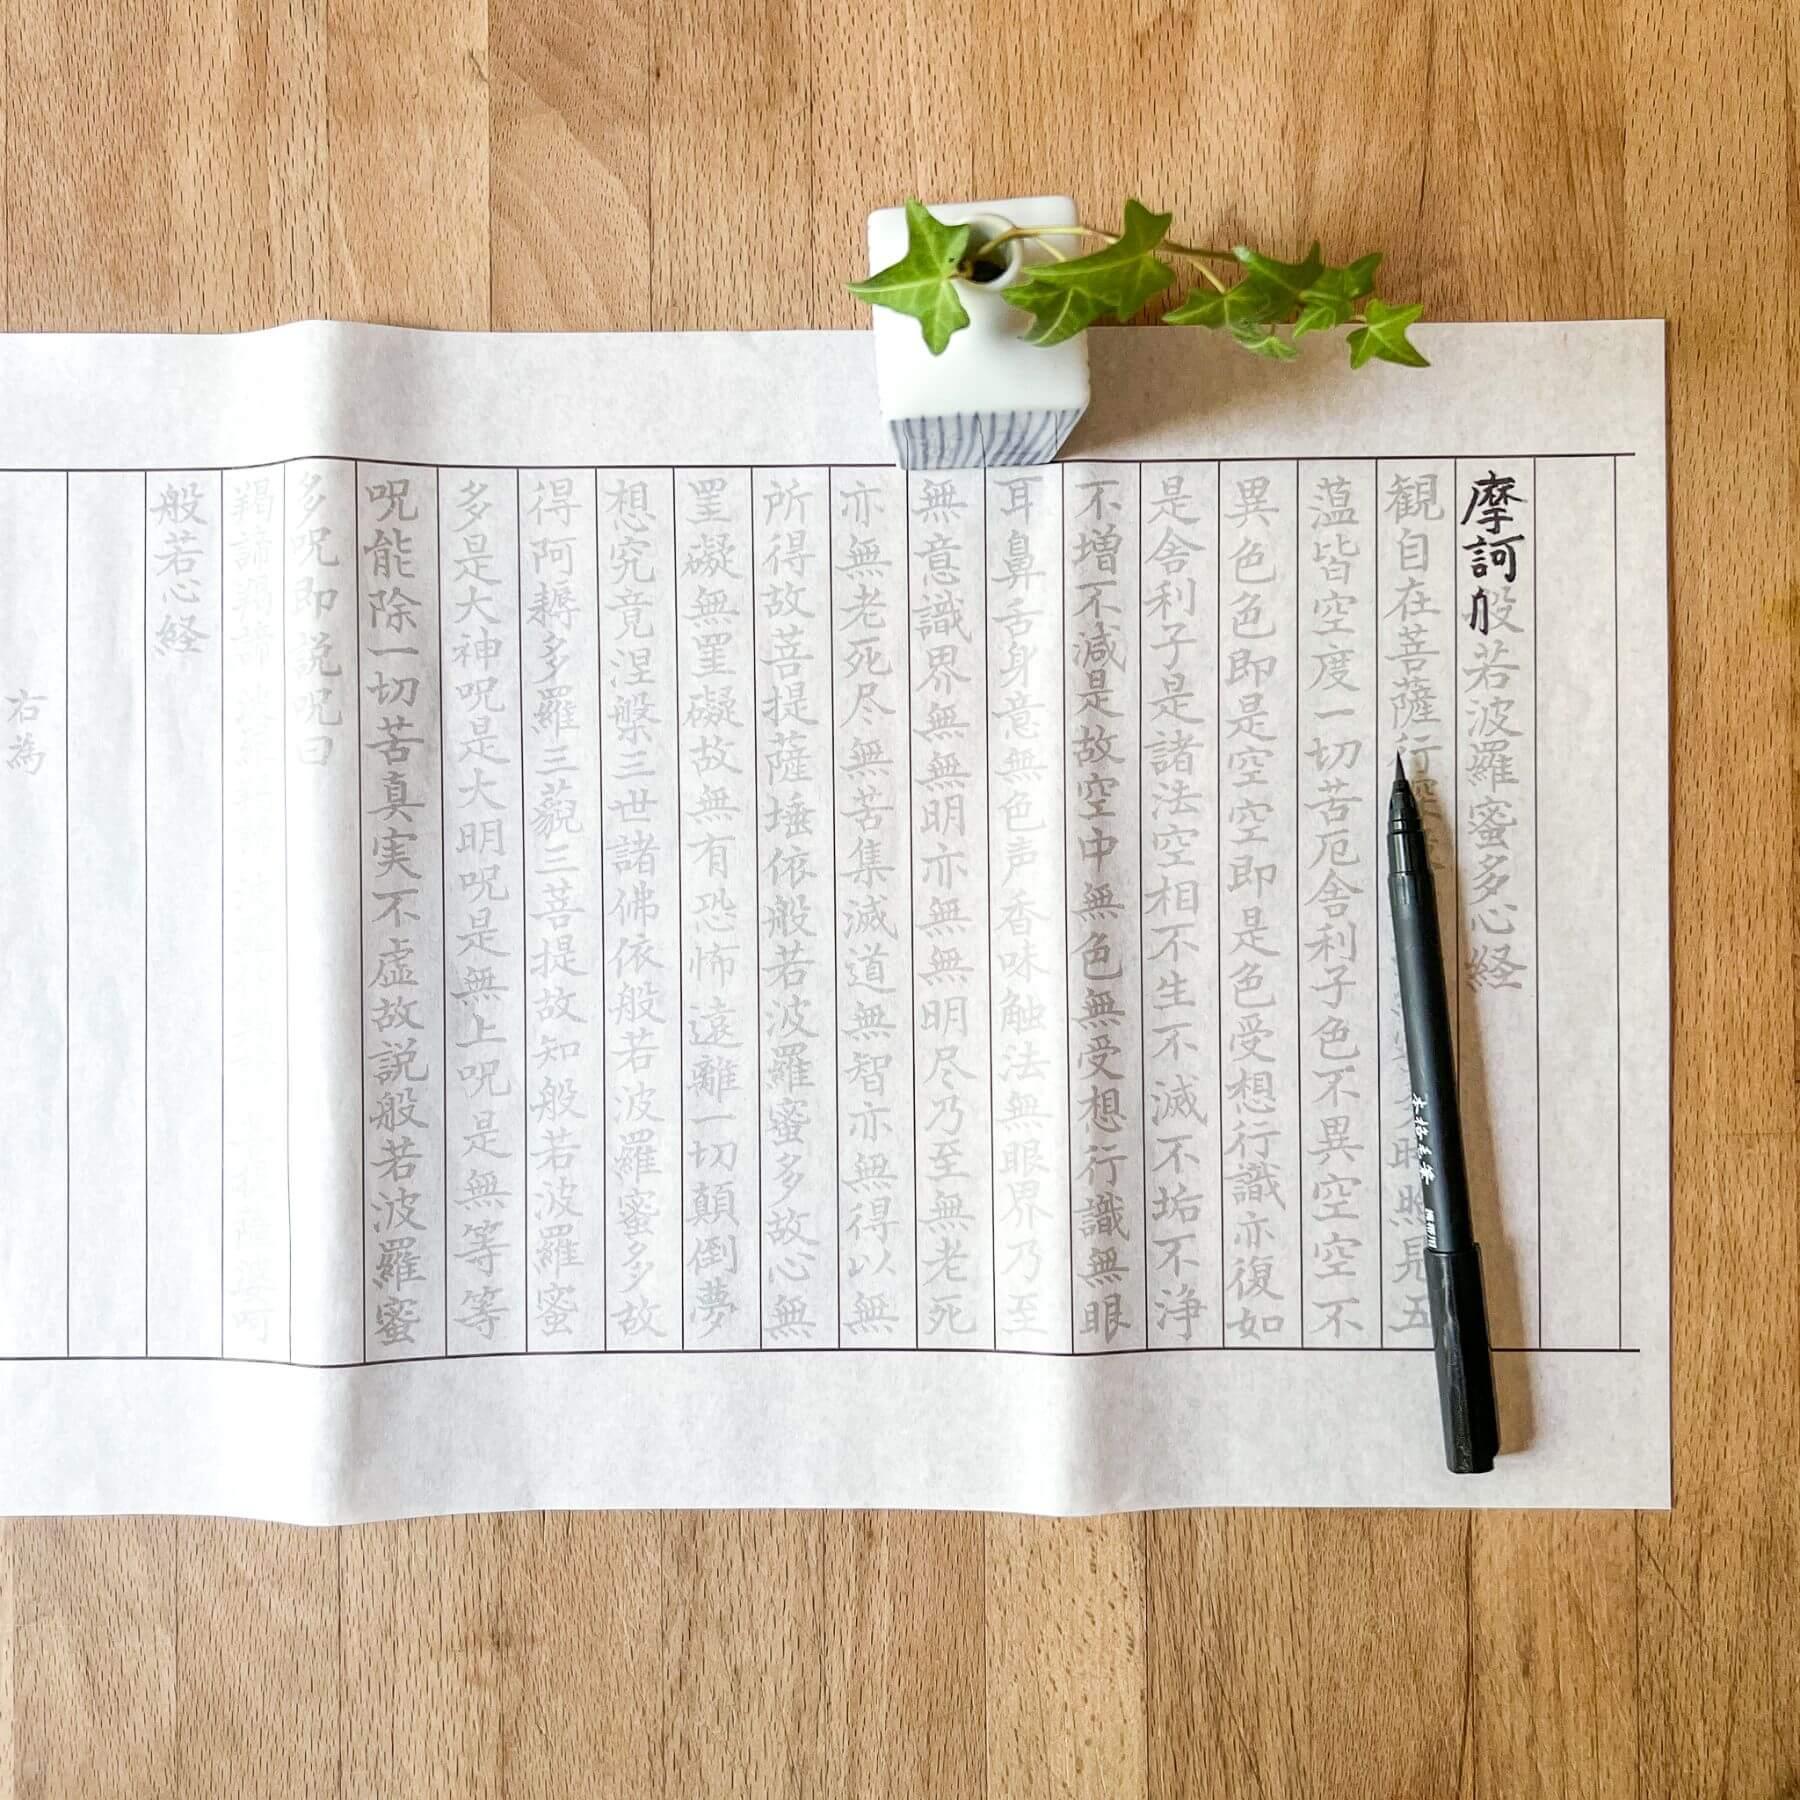 摩訶般若波羅蜜多心経
観自在菩薩行深時照見五
蘊皆空度一切苦厄舎利子色不異空空不
異色色即是空空即是色受想行識亦復如
是舎利子是諸法空相不生不滅不垢不浄
不増不減是故空中無色無受想行識無眼
耳鼻舌身意無色声香味触法無眼界乃至
無意識界無無明亦無無明尽乃至無老死
亦無老死尽無苦集滅道無智亦無得以無
所得故菩提薩埵依般若波羅蜜多故心無
罣礙無罣礙故無有恐怖遠離一切顛倒夢
想究竟涅槃三世諸佛依般若波羅蜜多故
得阿耨多羅三藐三菩提故知般若波羅蜜
多是大神呪是大明呪是無上呪是無等等
呪能除一切苦真実不虚故説般若波羅蜜
多呪即説呪曰
羯諦羯諦波羅菩提薩婆呵
般若心経
右為